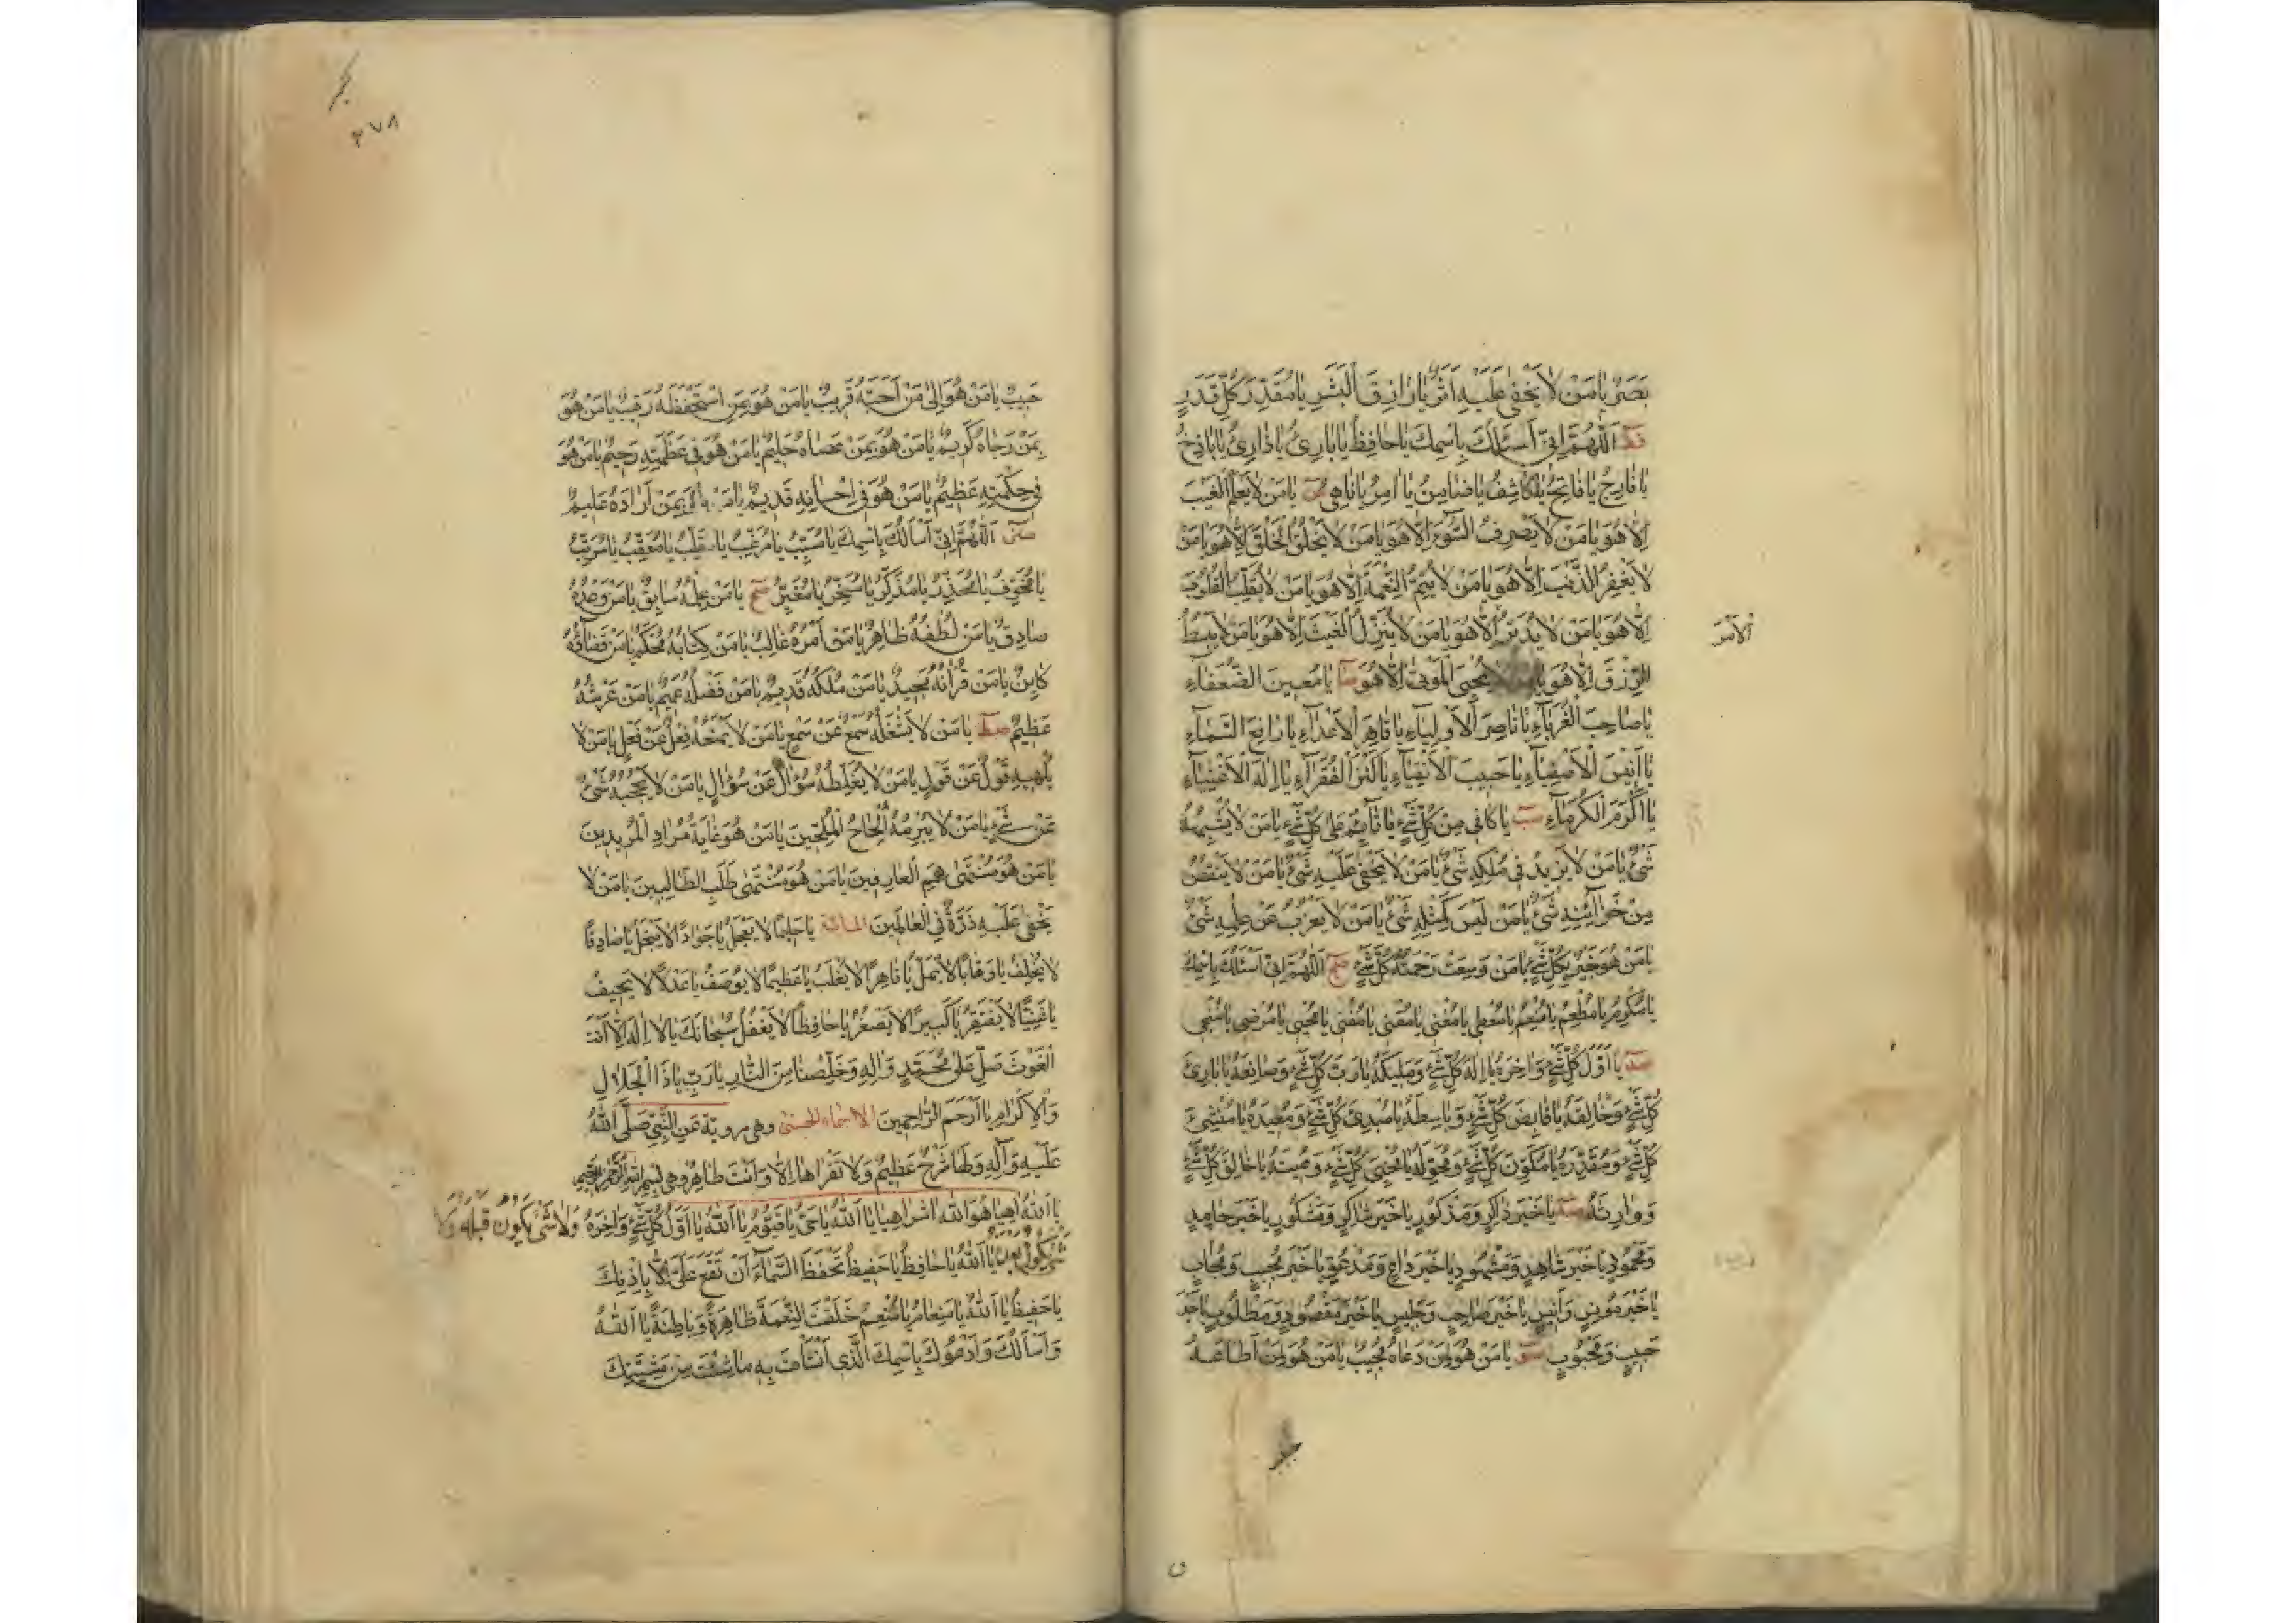 بَصَرٌ يَا مَنْ لَا يَخْفَى عَلَيْهِ أَثَرٌ يَا رَازِقَ الْبَشَرِ يَا مُقَدِّرَ كُلِّ قَدَرٍ
اَللّٰهُمَّ إِنِّي أَسْئَلُكَ بِاسْمِكَ يَا حَافِظُ يَا بَارِئُ يَا ذَارِئُ يَا بَاذِخُ
يَا فَارِجُ يَا فَاتِحُ يَا كَاشِفُ يَا ضَامِنُ يَا اٰمِرُ يَا نَاهِي يَا مَنْ لَا يَعْلَمُ الْغَيْبَ
إِلَّا هُوَ يَا مَنْ لَا يَصْرِفُ السُّوءَ إِلَّا هُوَ يَا مَنْ لَا يَخْلُقُ الْخَلْقَ إِلَّا هُوَ يَا مَنْ
لَا يَغْفِرُ الذَّنْبَ إِلَّا هُوَ يَا مَنْ لَا يُتِمُّ النِّعْمَةَ إِلَّا هُوَ يَا مَنْ لَا يُقَلِّبُ الْقُلُوبَ
إِلَّا هُوَ يَا مَنْ لَا يُدَبِّرُ إِلَّا هُوَ يَا مَنْ لَا يُنَزِّلُ الْغَيْثَ إِلَّا هُوَ يَا مَنْ لَا يَبْسُطُ
الْأَمْرَ
الرِّزْقَ إِلَّا هُوَ يَا لَا يُحْيِي الْمَوْتَى إِلَّا هُوَ يَا مُعِينَ الضُّعَفَاءِ
يَا صَاحِبَ الْغُرَبَاءِ يَا نَاصِرَ الْأَوْلِيَاءِ يَا قَاهِرَ الْأَعْدَاءِ يَا رَافِعَ السَّمَاءِ
يَا أَنِيسَ الْأَصْفِيَاءِ يَا حَبِيبَ الْأَتْقِيَاءِ يَا كَنْزَ الْفُقَرَاءِ يَا إِلٰهَ الْأَغْنِيَاءِ
يَا أَكْرَمَ الْكُرَمَاءِ يَا كَافِي مِنْ كُلِّ شَيْءٍ يَا قَائِمُ عَلَى كُلِّ شَيْءٍ يَا مَنْ لَا يُشْبِهُهُ
شَيْءٌ يَا مَنْ لَا يَزِيدُ فِي مُلْكِهِ شَيْءٌ يَا مَنْ لَا يَخْفَى عَلَيْهِ شَيْءٌ يَا مَنْ لَا يَنْقُصُ
مِنْ خَزَائِنِهِ شَيْءٌ يَا مَنْ لَيْسَ كَمِثْلِهِ شَيْءٌ يَا مَنْ لَا يَعْزُبُ عَنْ عِلْمِهِ شَيْءٌ
يَا مَنْ هُوَ خَبِيرٌ بِكُلِّ شَيْءٍ يَا مَنْ وَسِعَتْ رَحْمَتُهُ كُلَّ شَيْءٍ اَللّٰهُمَّ إِنِّي أَسْئَلُكَ بِاسْمِكَ
يَا مُكْرِمُ يَا مُطْعِمُ يَا مُنْعِمُ يَا مُعْطِي يَا مُغْنِي يَا مُقْنِي يَا مُفْنِي يَا مُحْيِي يَا مُرْضِي يَا مُنْجِي
يَا أَوَّلَ كُلِّ شَيْءٍ وَآخِرَهُ يَا إِلٰهَ كُلِّ شَيْءٍ وَمَلِيكَهُ يَا رَبَّ كُلِّ شَيْءٍ وَصَانِعَهُ يَا بَارِئَ
كُلِّ شَيْءٍ وَخَالِقَهُ يَا قَابِضَ كُلِّ شَيْءٍ وَبَاسِطَهُ يَا مُبْدِئَ كُلِّ شَيْءٍ وَمُعِيدَهُ يَا مُنْشِئَ
كُلِّ شَيْءٍ وَمُقَدِّرَهُ يَا مُكَوِّنَ كُلِّ شَيْءٍ وَمُحَوِّلَهُ يَا مُحْيِيَ كُلِّ شَيْءٍ وَمُمِيتَهُ يَا خَالِقَ كُلِّ شَيْءٍ
وَوَارِثَهُ يَا خَيْرَ ذَاكِرٍ وَمَذْكُورٍ يَا خَيْرَ شَاكِرٍ وَمَشْكُورٍ يَا خَيْرَ حَامِدٍ
وَمَحْمُودٍ يَا خَيْرَ شَاهِدٍ وَمَشْهُودٍ يَا خَيْرَ دَاعٍ وَمَدْعُوٍّ يَا خَيْرَ مُجِيبٍ وَمُجَابٍ
يَا خَيْرَ مُونِسٍ وَأَنِيسٍ يَا خَيْرَ صَاحِبٍ وَجَلِيسٍ يَا خَيْرَ مَقْصُودٍ وَمَطْلُوبٍ يَا خَيْرَ
حَبِيبٍ وَمَحْبُوبٍ يَا مَنْ هُوَ لِمَنْ دَعَاهُ مُجِيبٌ يَا مَنْ هُوَ لِمَنْ أَطَاعَهُ
٣٧٨
حَبِيبٌ يَا مَنْ هُوَ إِلَى مَنْ أَحَبَّهُ قَرِيبٌ يَا مَنْ هُوَ بِمَنِ اسْتَحْفَظَهُ رَقِيبٌ يَا مَنْ هُوَ
بِمَنْ رَجَاهُ كَرِيمٌ يَا مَنْ هُوَ بِمَنْ عَصَاهُ حَلِيمٌ يَا مَنْ هُوَ فِي عَظَمَتِهِ رَحِيمٌ يَا مَنْ هُوَ
فِي حِكْمَتِهِ عَظِيمٌ يَا مَنْ هُوَ فِي إِحْسَانِهِ قَدِيمٌ يَا مَنْ بِمَنْ أَرَادَهُ عَلِيمٌ
اَللّٰهُمَّ إِنِّي أَسْأَلُكَ بِاسْمِكَ يَا مُسَبِّبُ يَا مُرَغِّبُ يَا مُقَلِّبُ يَا مُعَقِّبُ يَا مُرَتِّبُ
يَا مُخَوِّفُ يَا مُحَذِّرُ يَا مُذَكِّرُ يَا مُسَخِّرُ يَا مُغَيِّرُ يَا مَنْ عِلْمُهُ سَابِقٌ يَا مَنْ وَعْدُهُ
صَادِقٌ يَا مَنْ لُطْفُهُ ظَاهِرٌ يَا مَنْ أَمْرُهُ غَالِبٌ يَا مَنْ كِتَابُهُ مُحْكَمٌ يَا مَنْ قَضَاؤُهُ
كَايِنٌ يَا مَنْ قُرْاٰنُهُ مَجِيدٌ يَا مَنْ مُلْكُهُ قَدِيمٌ يَا مَنْ فَضْلُهُ عَمِيمٌ يَا مَنْ عَرْشُهُ
عَظِيمٌ يَا مَنْ لَا يَشْغَلُهُ سَمْعٌ عَنْ سَمْعٍ يَا مَنْ لَا يَمْنَعُهُ فِعْلٌ عَنْ فِعْلٍ يَا مَنْ لَا
يُلْهِيهِ قَوْلٌ عَنْ قَوْلٍ يَا مَنْ لَا يُغَلِّطُهُ سُؤَالٌ عَنْ سُؤَالٍ يَا مَنْ لَا يَحْجُبُهُ شَيْءٌ
عَنْ شَيْءٍ يَا مَنْ لَا يُبْرِمُهُ إِلْحَاحُ الْمُلِحِّينَ يَا مَنْ هُوَ غَايَةُ مُرَادِ الْمُرِيدِينَ
يَا مَنْ هُوَ مُنْتَهَى هِمَمِ الْعَارِفِينَ يَا مَنْ هُوَ مُنْتَهَى طَلَبِ الطَّالِبِينَ يَا مَنْ لَا
يَخْفَى عَلَيْهِ ذَرَّةٌ فِي الْعَالَمِينَ المائة يَا حَلِيمًا لَا يَعْجَلُ يَا جَوَادًا لَا يَبْخَلُ يَا صَادِقًا
لَا يُخْلِفُ يَا وَهَّابًا لَا يَمَلُّ يَا قَاهِرًا لَا يُغْلَبُ يَا عَظِيمًا لَا يُوصَفُ يَا عَدْلًا لَا يَحِيفُ
يَا غَنِيًّا لَا يَفْتَقِرُ يَا كَبِيرًا لَا يَصْغُرُ يَا حَافِظًا لَا يَغْفُلُ سُبْحَانَكَ يَا لَا إِلٰهَ إِلَّا أَنْتَ
الْغَوْثَ صَلِّ عَلَى مُحَمَّدٍ وَآلِهِ وَخَلِّصْنَا مِنَ النَّارِ يَا رَبِّ يَا ذَا الْجَلَالِ
وَالْإِكْرَامِ يَا أَرْحَمَ الرَّاحِمِينَ الاسماء الحسنى وهي مروية عَنِ النَّبِيِّ صَلَّى اللهُ
عَلَيْهِ وَآلِهِ وَلَهَا شَرْحٌ عَظِيمٌ وَلَا تَقْرَأْهَا إِلَّا وَأَنْتَ طَاهِرٌ وهي بسم الله الرحمن الرحيم
يَا اَللهُ أَهْيَا هُوَ اللهُ اشراهيا يَا اَللهُ يَا حَيُّ يَا قَيُّومُ يَا اَللهُ يَا أَوَّلَ كُلِّ شَيْءٍ وَآخِرَهُ وَلَا شَيْءَ يَكُونُ قَبْلَهُ وَلَا
شَيْءَ يَكُونُ بَعْدَهُ يَا اَللهُ يَا حَافِظُ يَا حَفِيظُ تَحْفَظُ السَّمَاءَ أَنْ تَقَعَ عَلَى إِلَّا بِإِذْنِكَ
يَا حَفِيظُ يَا اَللهُ يَا مُنْعِمُ خَلَقْتَ النِّعْمَةَ ظَاهِرَةً وَبَاطِنَةً يَا اَللهُ
وَأَسْأَلُكَ وَأَدْعُوكَ بِاسْمِكَ الَّذِي أَنْشَأْتَ بِهِ مَا شِئْتَ مِنْ مَشِيَّتِكَ